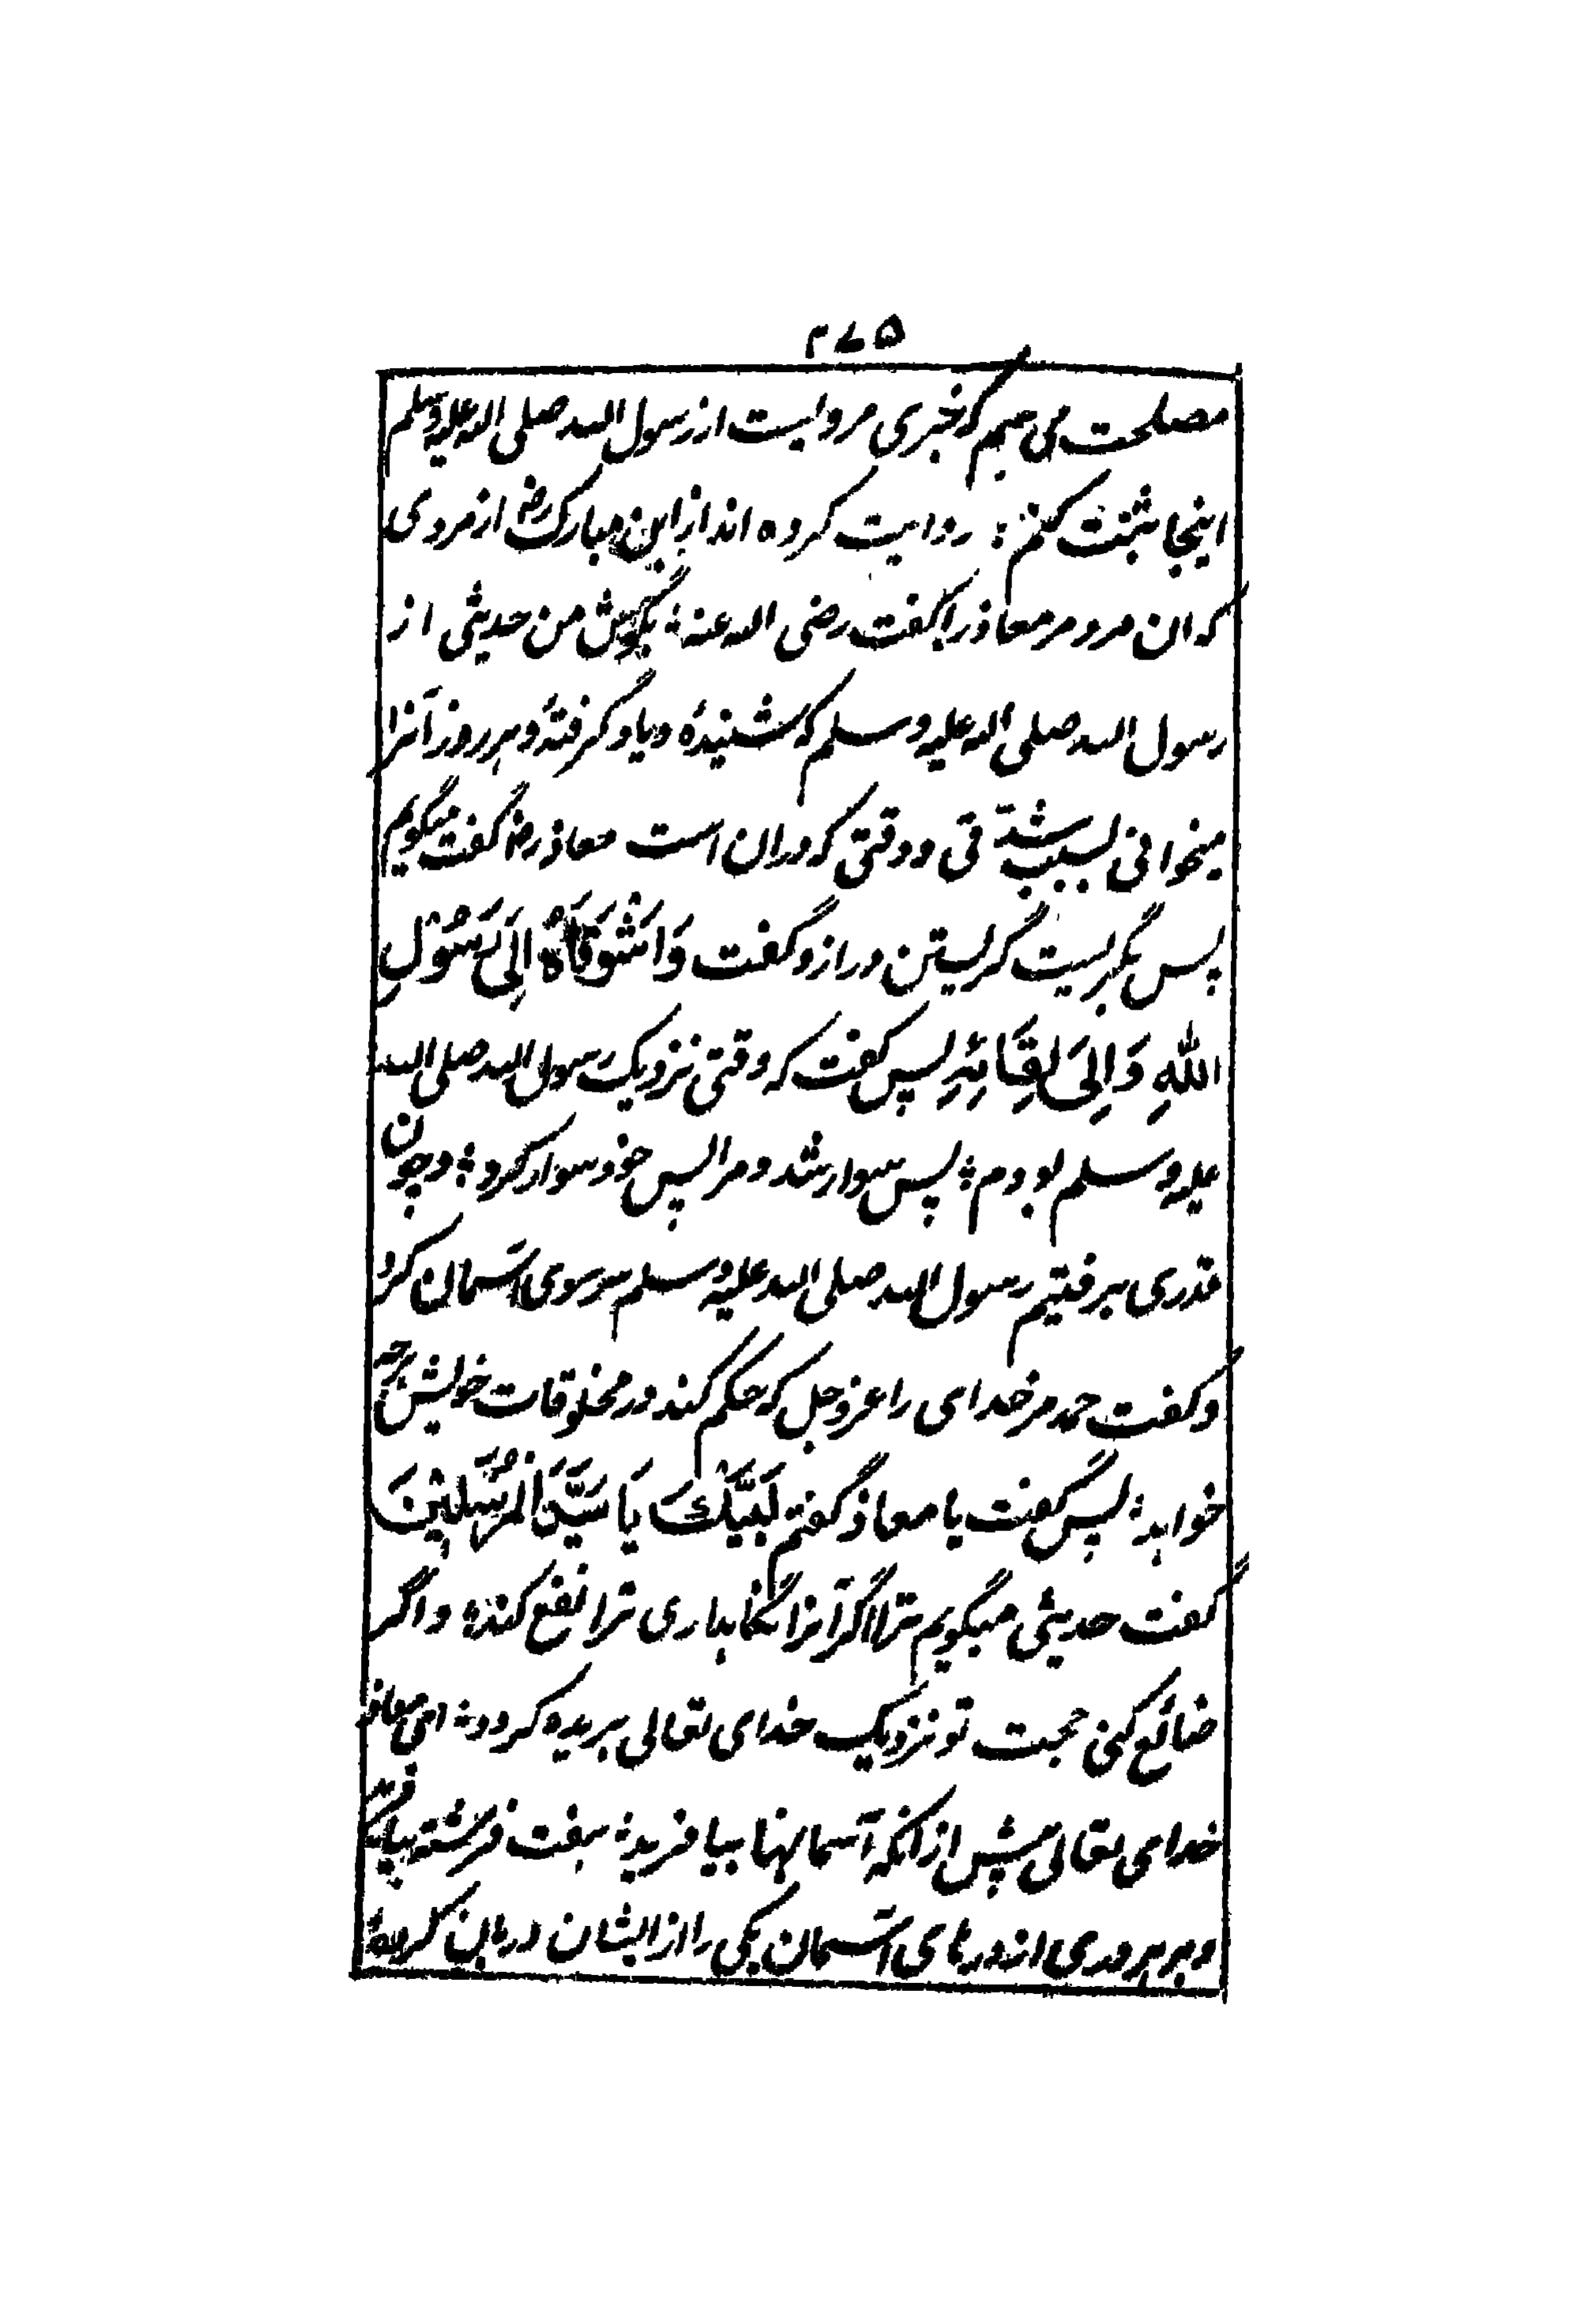 ۲۷۵
مصلحت می بینم که خبری مرویست از رسول الله صلی الله علیه وسلم
اینجا ثبت کنم : روایت کرده اند از ابن مبارک رضـ از مردی
که ان مرد مر معاذ را گفت رضی الله عنه : بگوش من حدیثی از
رسول الله صلی الله علیه وسلم که شنیدهٔ و یاد گرفتهٔ و هر روز آنرا
میخوانی بسبب شدّ قی و وقتی که دران است معاذ رضـ گفت میگویم
پس بگریست گریستن دراز و گفت وَاشَوقَاهُ اِلَی رَسُوْلِ
اللّٰهِ وَاِلیَ لِقَائِهِ پس گفت که وقتی نزدیک رسول الله صلی الله
علیه وسلم بودم : پس سوار شد و مرا پس خود سوار کرد : و چون
قدری برفتیم رسول الله صلی الله علیه وسلم سر سوی آسمان کرد
و گفت حمد مر خدای را عز وجل که حکم کند در مخلوقات خویش هرچه
خواهد : پس گفت یا معاذ گفتم لَبَیَّکَ یَا سَیَّدَ الْمُرْسَلِیْنَ
گفت حدیثی میگویم ترا اگر آنرا نگاهداری ترا نفع کند : و اگر
ضائع کنی حجت تو نزدیک خدای تعالی بریده گردد : ای معاذ
خدای تعالی پیش ازانکه آسمانها بیافرید : هفت فرشته بیافرید
و بر هر دری از درهای آسمان یکی را از ایشان دربان کرده